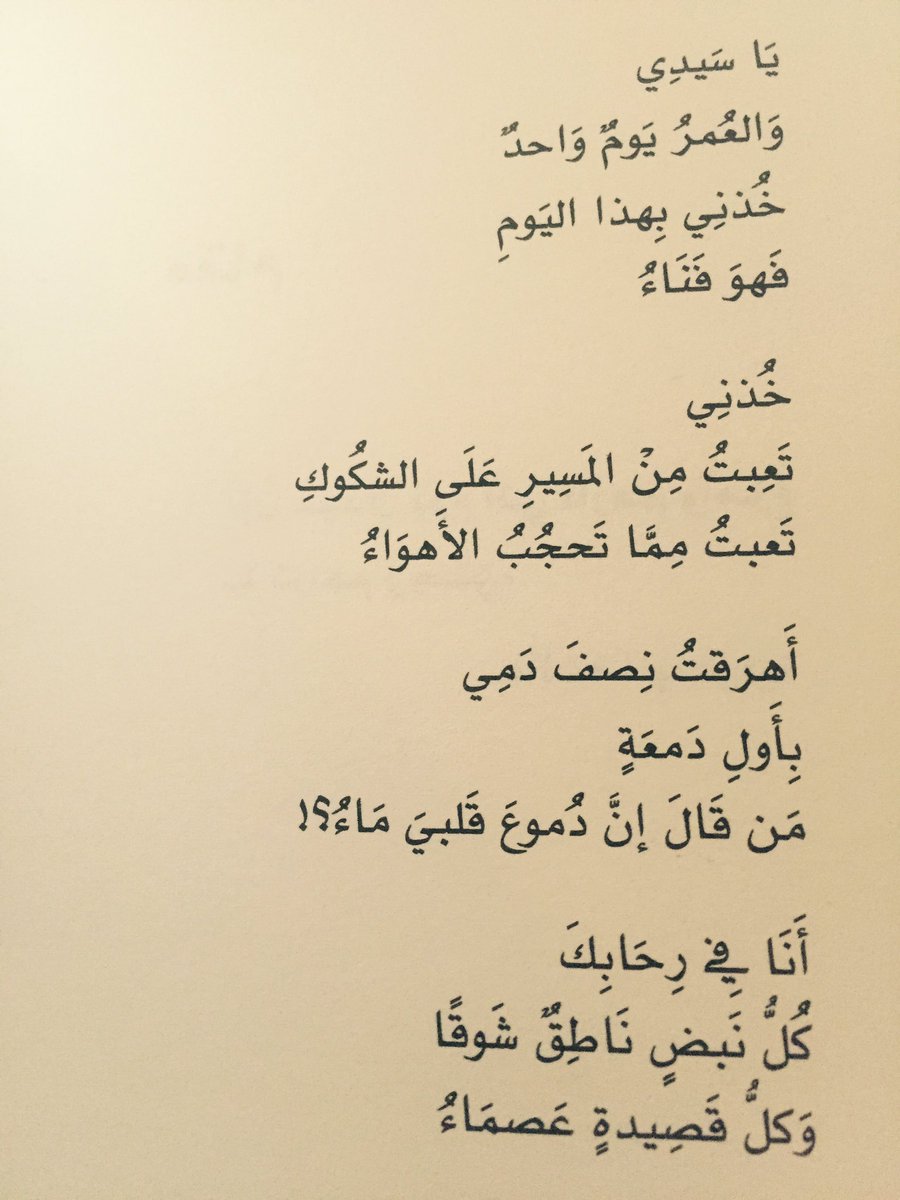 يَا سَيدِي
وَالعُمرُ يَومٌ وَاحدٌ
خُذنِي بِهذا اليَومِ
فَهوَ فَنَاءُ
خُذنِي
تَعِبتُ مِنْ المَسِيرِ عَلَى الشكُوكِ
تَعبتُ مِمَّا تَحجُبُ الأَهوَاءُ
أَهرَقتُ نِصفَ دَمِي
بِأَولِ دَمعَةٍ
مَن قَالَ إنَّ دُموعَ قَلبيَ مَاءُ؟!
أَنَا فِي رِحَابِكَ
كُلُّ نَبضٍ نَاطِقٌ شَوقًا
وَكلُّ قَصِيدةٍ عَصمَاءُ